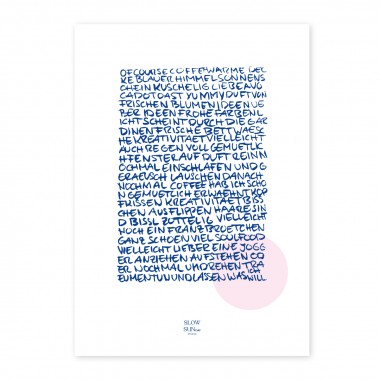 OFCOURSE COFFEE WARME DEC
KE BLAUER HIMMEL SONNENS
CHEIN KUSCHELIG LIEBE AVO
CADOTOAST YUMMY DUFT VON
FRISCHEN BLUMEN IDEEN UE
BER IDEEN FROHE FARBEN L
ICHT SCHEINT DURCH DIE GAR
DINEN FRISCHE BETTWAES
HE KREATIVITAET VIELLEICHT
AUCH REGEN VOLL GEMUETLIC
H FENSTER AUF DUFT REIN N
OCHMAL EINSCHLAFEN UND G
ERAEUSCH LAUSCHEN DANACH
NOCHMAL COFFEE HAB ICH SCHO
N GEMUETLICH ERWAEHNT KOPF
KISSEN KREATIVITAET BISS
CHEN AUSFLIPPEN HAARE SIN
D BISSL ZOTTELIG VIELLEICHT
NOCH EIN FRANZBROETCHEN
GANZ SCHOEN VIEL SOULFOOD
VIELLEICHT LIEBER EINE JOGG
ER ANZIEHEN AUFSTEHEN CO
ER NOCHMAL UMDREHEN TRA
EUMEN TUN UND LASSEN WAS ICH WILL
SLOW
SUN